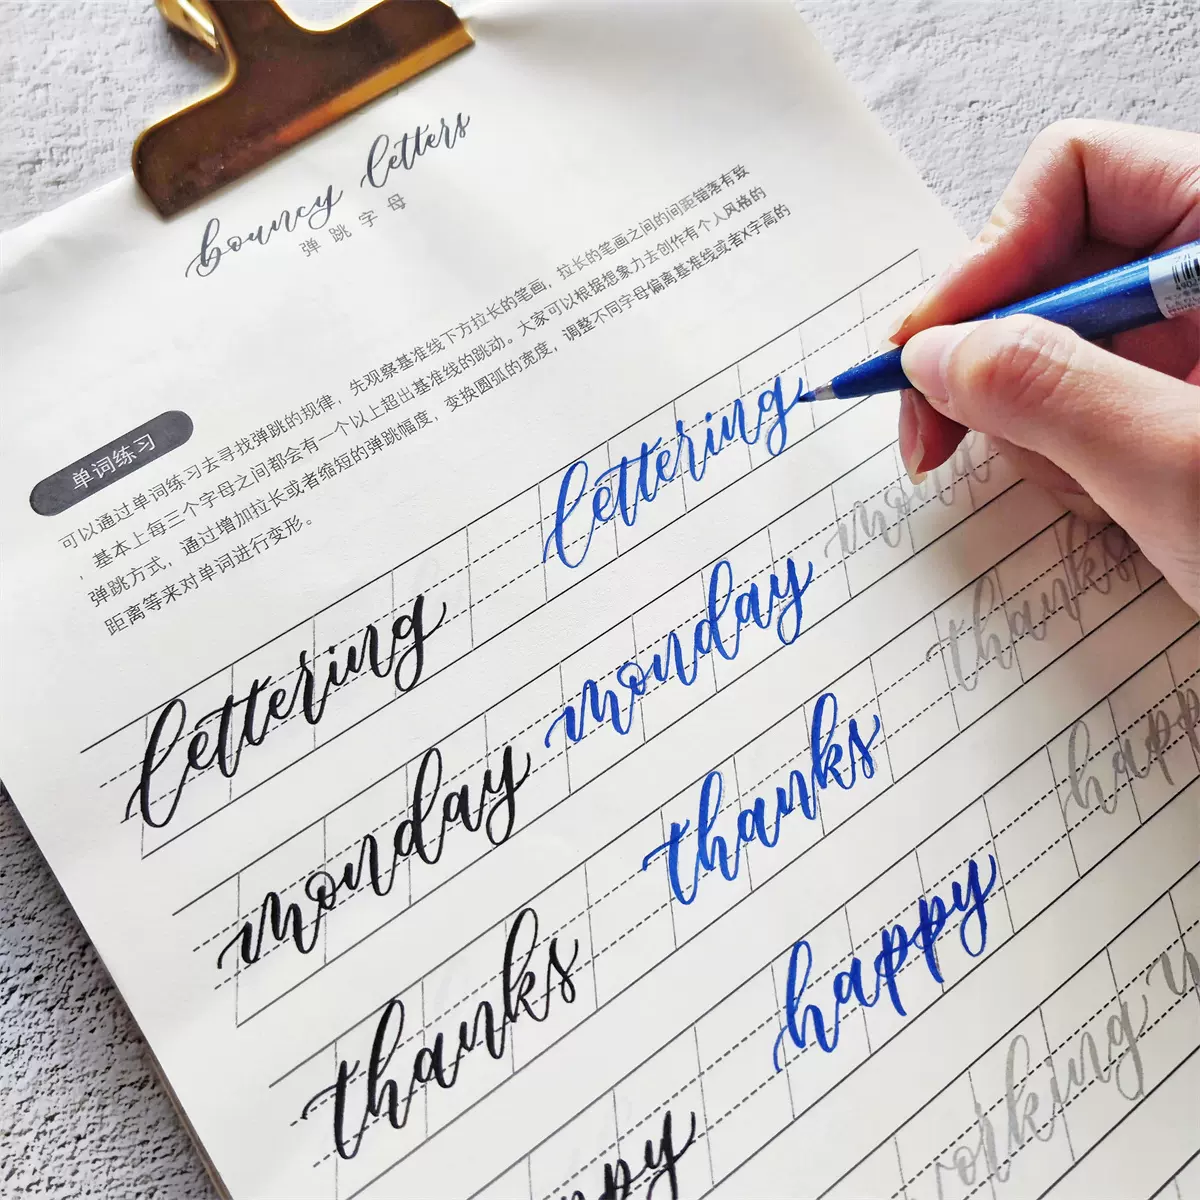 bouncy letters
弹跳字母
单词练习
可以通过单词练习去寻找弹跳的规律，先观察基准线下方拉长的笔画，拉长的笔画之间的间距错落有致
，基本上每三个字母之间都会有一个以上超出基准线的跳动。大家可以根据想象力去创作有个人风格的
弹跳方式，通过增加拉长或者缩短的弹跳幅度，变换圆弧的宽度，调整不同字母偏离基准线或者X字高的
距离等来对单词进行变形。
lettering lettering
monday monday
thanks thanks thanks
happy
working